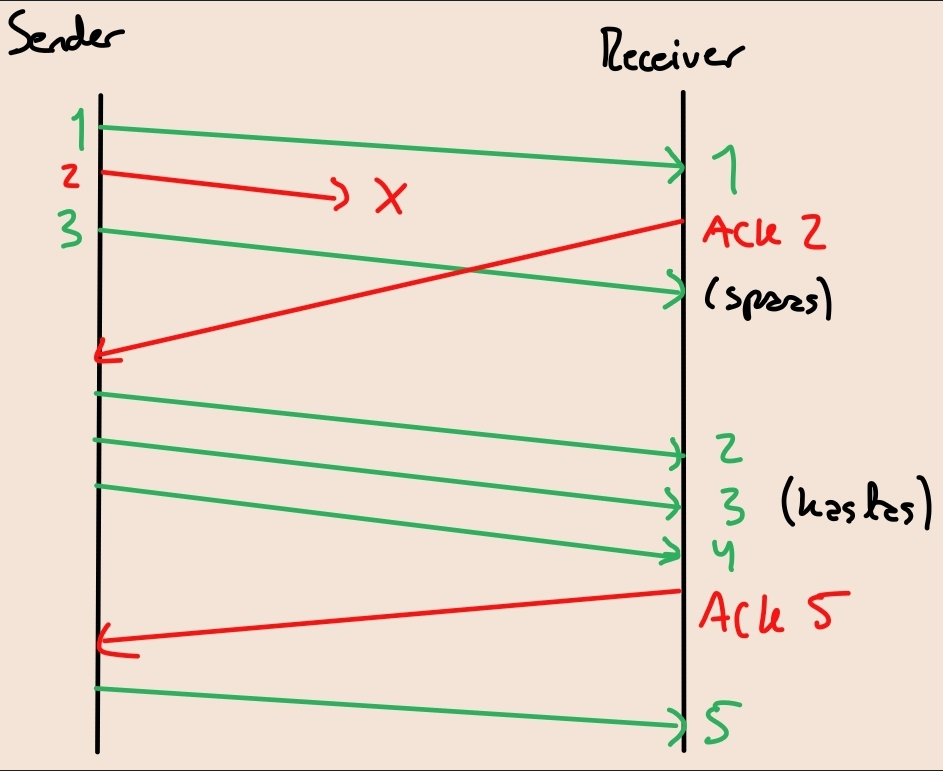 Sender
Receiver
1
1
2 X
3
Ack 2
(sparas)
2
3 (kastas)
4
Ack 5
5